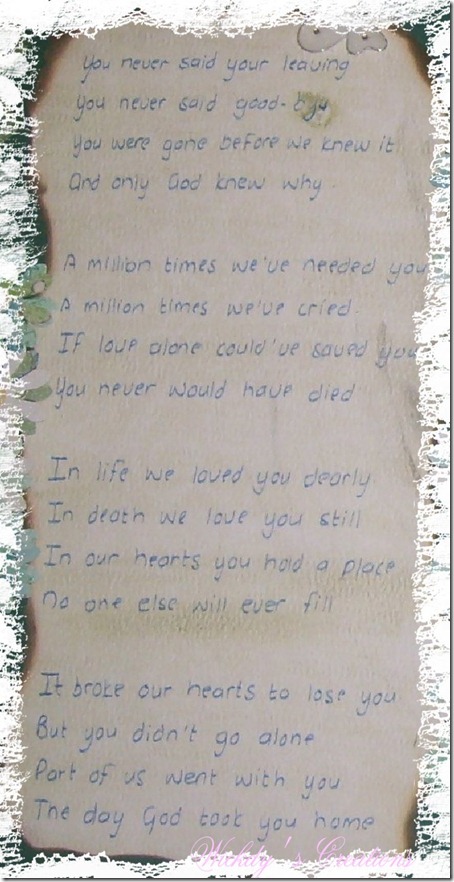 You never said your leaving
You never said good-by
You were gone before we knew it
And only God knew why.
A million times we've needed you
A million times we've cried.
If love alone could've saved you
You never would have died
In life we loved you dearly
In death we love you still
In our hearts you hold a place
No one else will ever fill
It broke our hearts to lose you
But you didn't go alone
Part of us went with you
The day God took you home
Creations